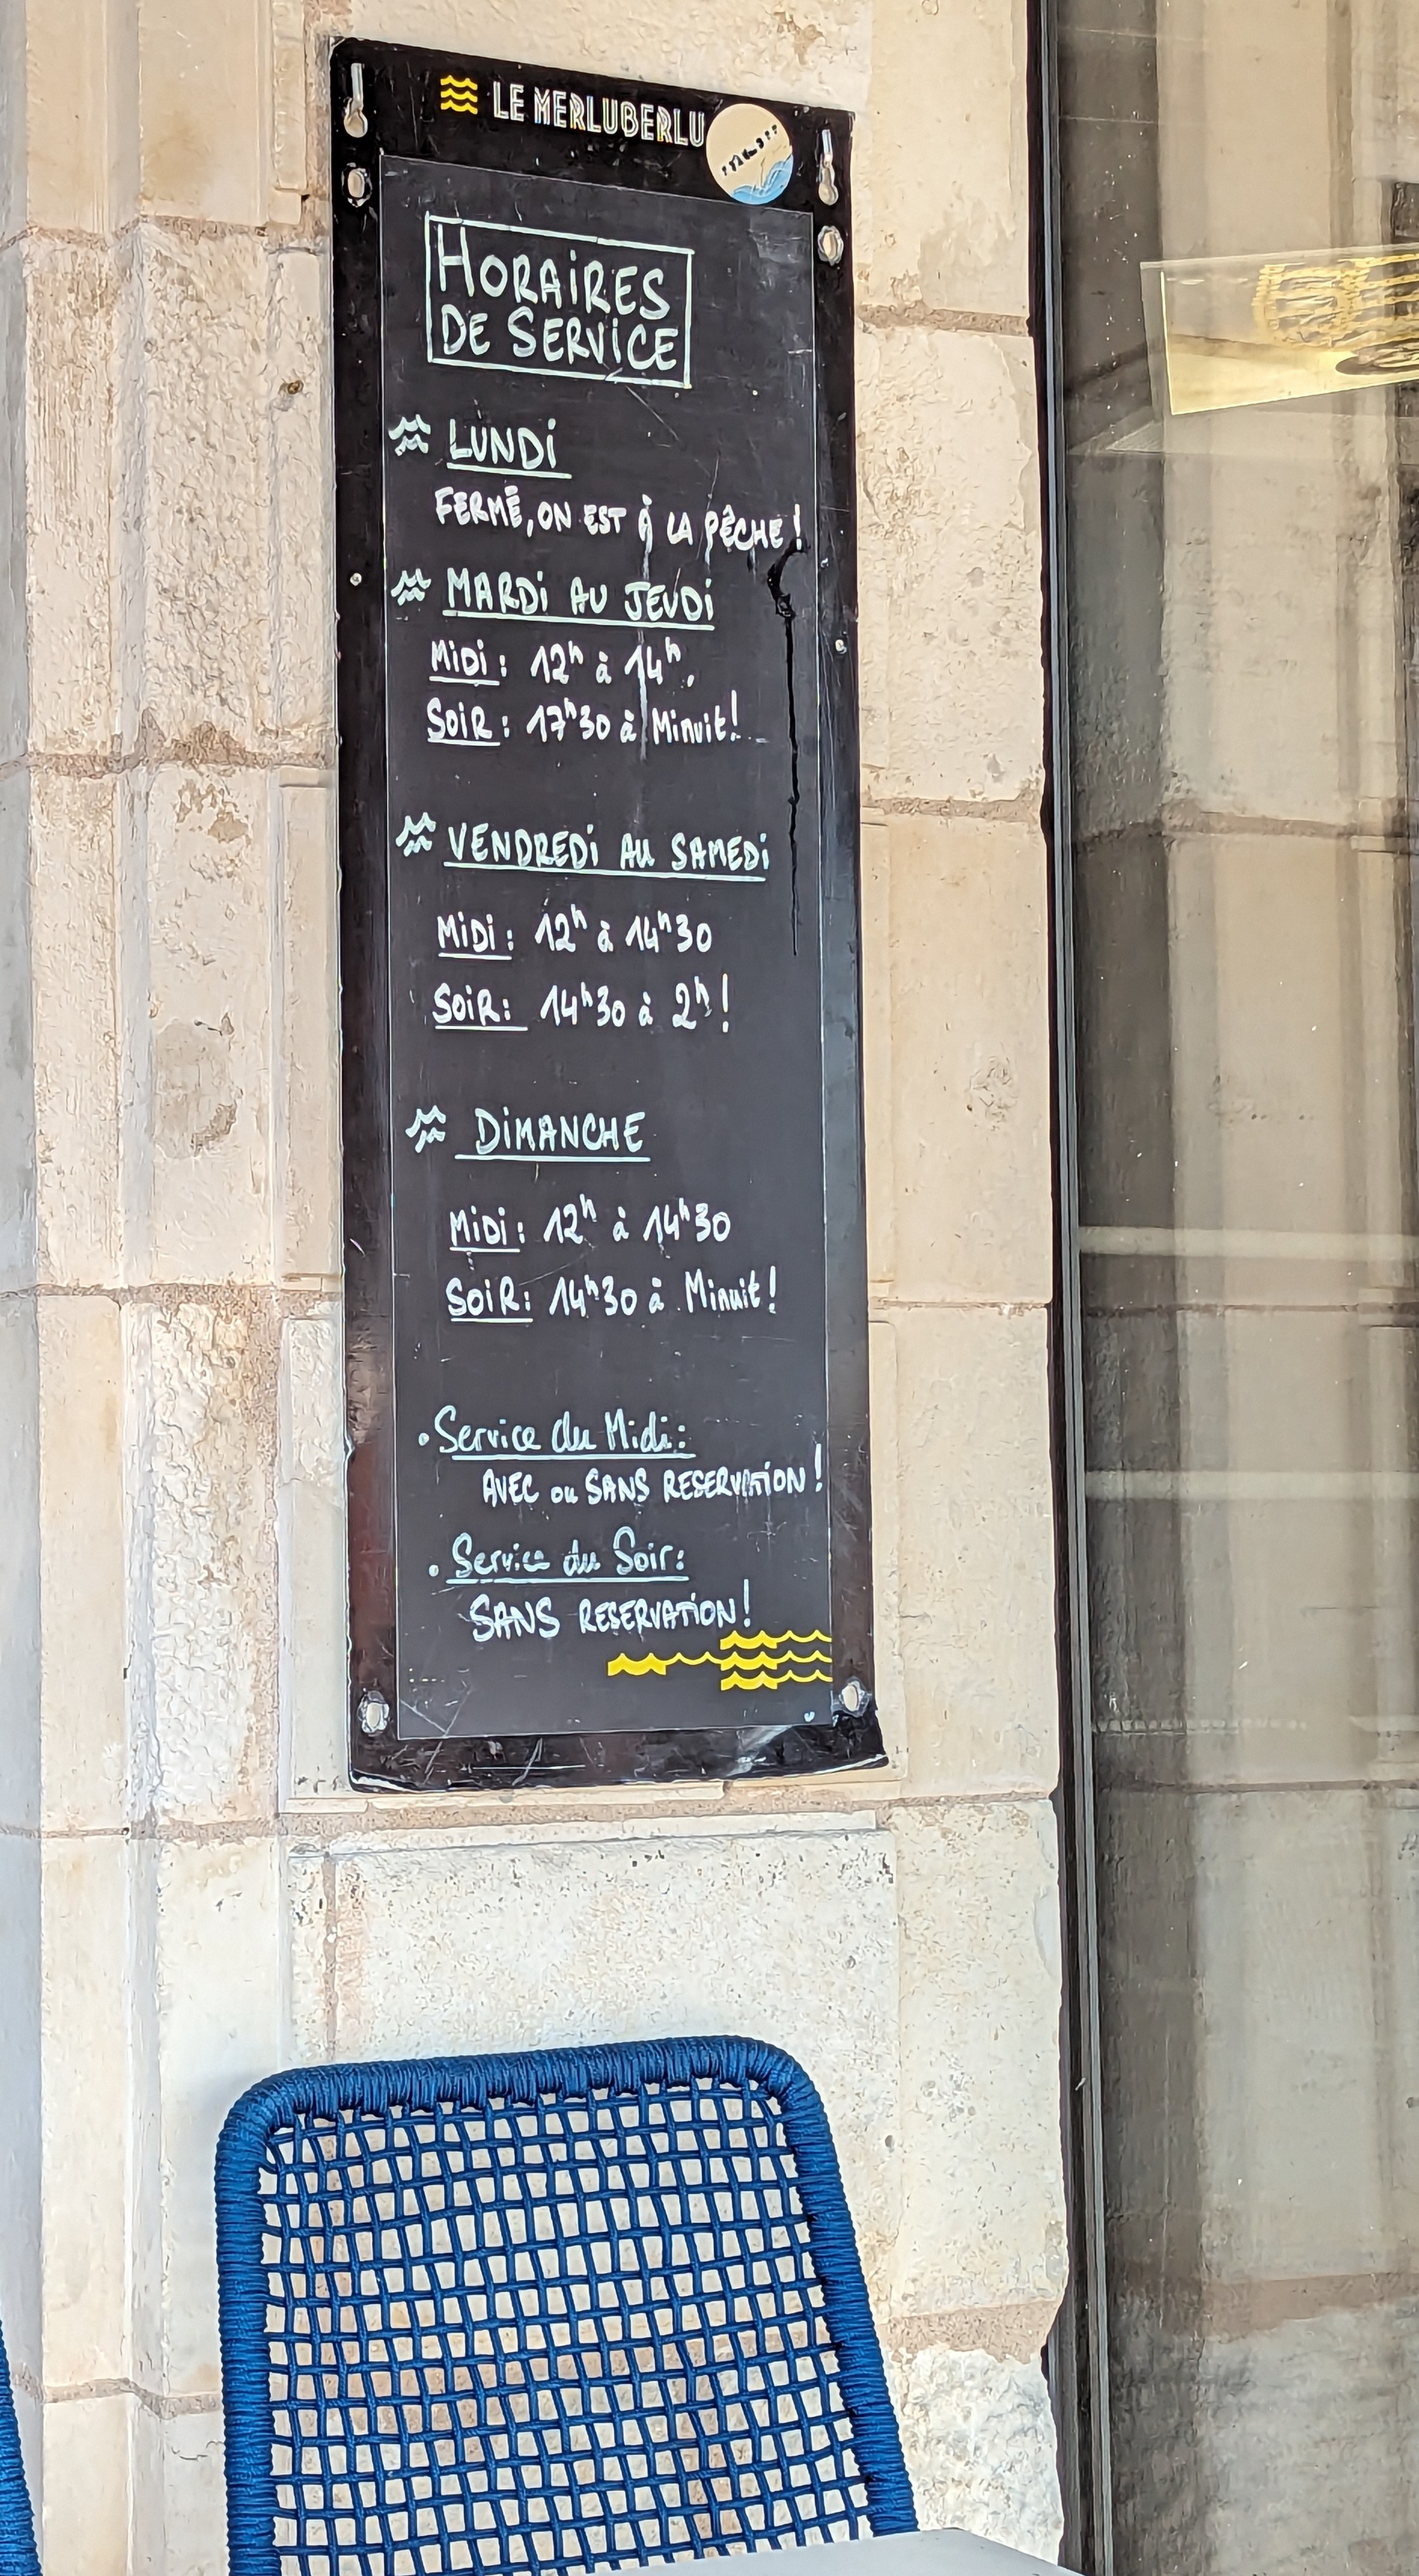 LE MERLUBERLU
HORAIRES
DE SERVICE
LUNDI
FERMÉ, ON EST À LA PÊCHE !
MARDI AU JEUDI
MIDI : 12h à 14h.
SOIR : 17h30 à Minuit !
VENDREDI AU SAMEDI
MIDI : 12h à 14h30
SOIR : 14h30 à 2h !
DIMANCHE
MIDI : 12h à 14h30
SOIR : 14h30 à Minuit !
• Service du Midi :
AVEC ou SANS RESERVATION !
• Service du Soir :
SANS RESERVATION !